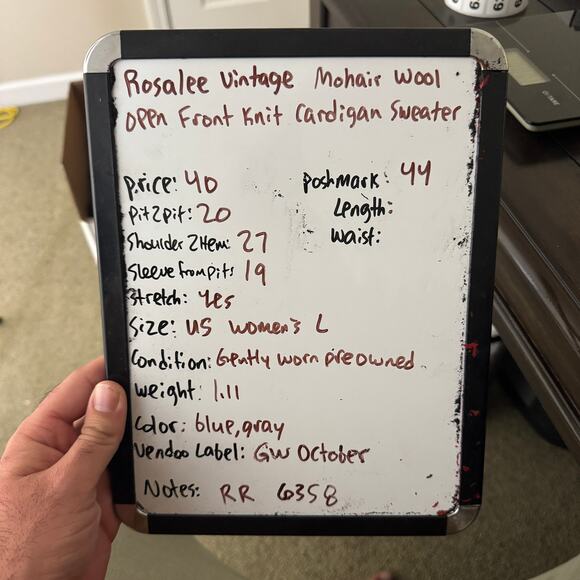 Rosalee Vintage Mohair Wool
Open Front Knit Cardigan Sweater
price: 40
poshmark: 44
pit2pit: 20
Length:
Shoulder2Hem: 27
waist:
Sleeve from pits 19
stretch: yes
Size: US women's L
Condition: Gently worn preowned
weight: 1.11
Color: blue, gray
Vendoo Label: GW October
Notes: RR 6358